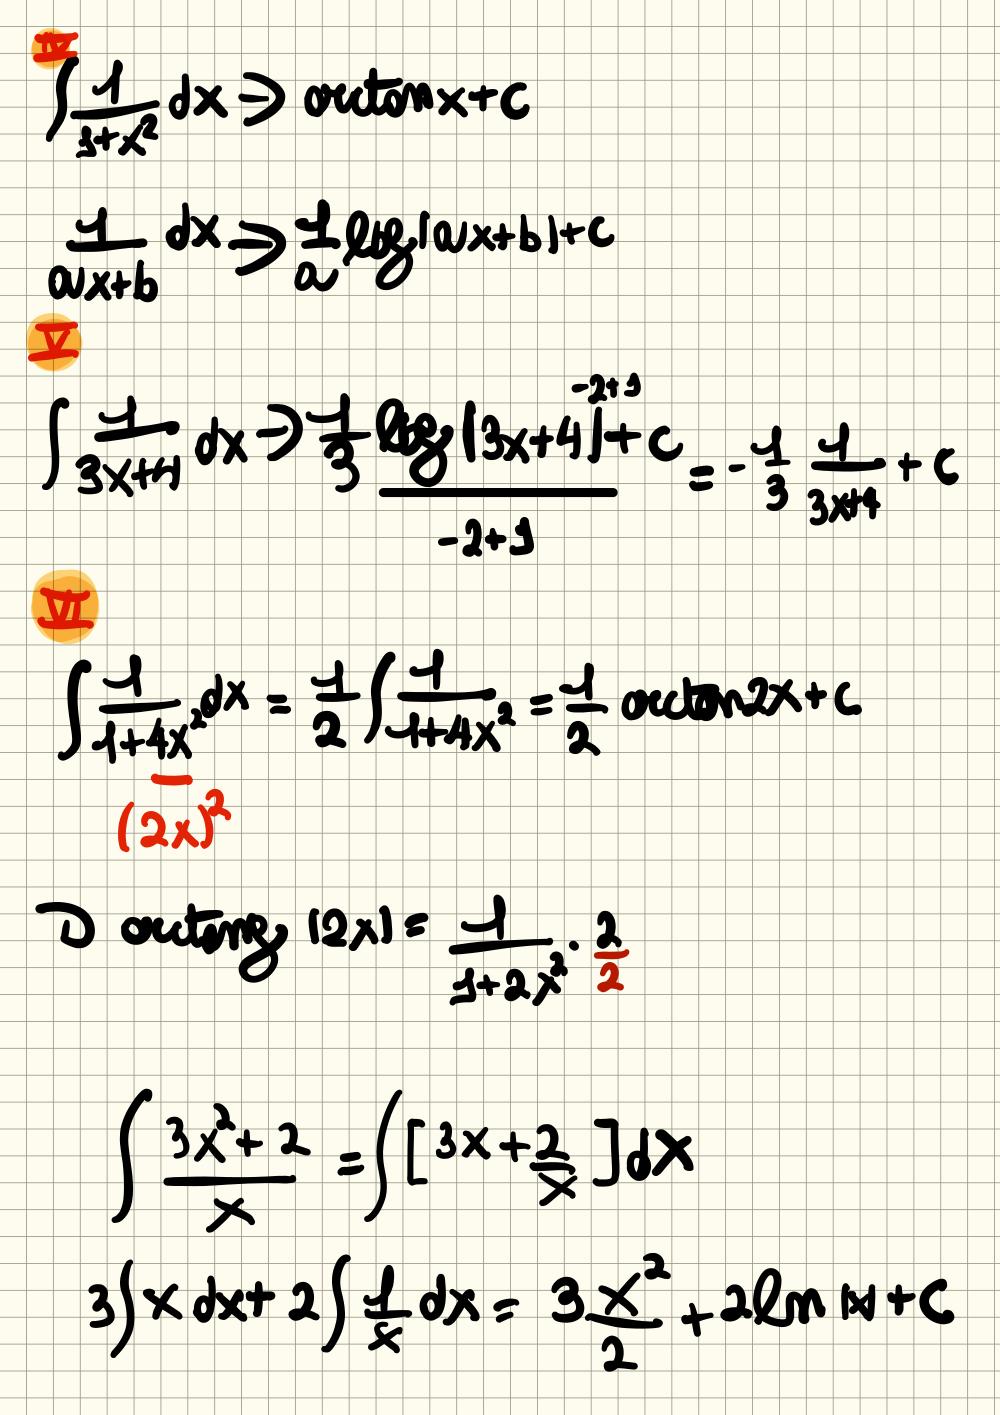 IV
∫ 1/(1+x²) dx → arctan x + c
1/(ax+b) dx ⇒ 1/a log |ax+b| + c
V
∫ 1/(3x+4) dx → 1/3 log |3x+4|^(-2+1) + c / (-2+1) = - 1/3 1/(3x+4) + c
VI
∫ 1/(1+4x²) dx = 1/2 ∫ 1/(1+4x²) = 1/2 arctan 2x + c
(2x)²
D arctang |2x| = 1/(1+2x²) · 2/2
∫ (3x²+2)/x = ∫ [3x + 2/x] dx
3∫ x dx + 2∫ 1/x dx = 3 x²/2 + 2 ln |x| + c